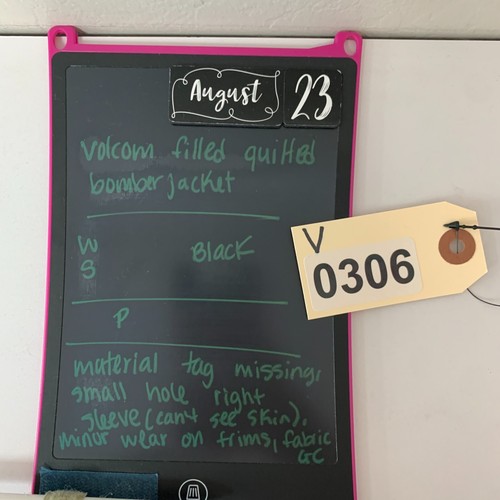 August 23
Volcom filled quilted
bomber jacket
W Black
S
P
material tag missing,
small hole right
sleeve (can't see skin).
minor wear on trims, fabric
GC
V
0306